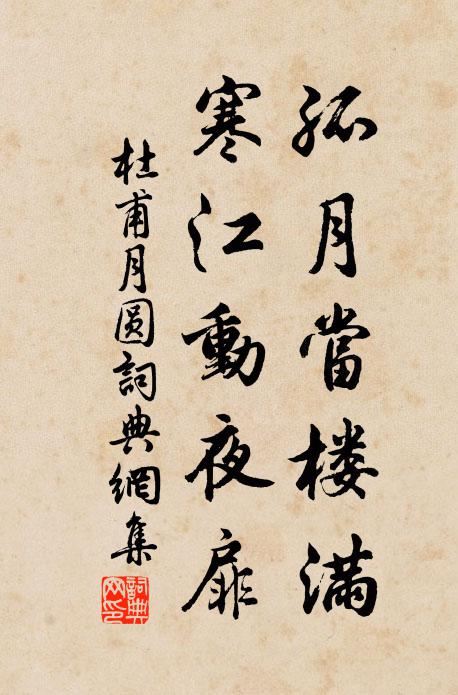 孤月當楼滿
寒江動夜扉
杜甫月圆詞典網集
詞典網印